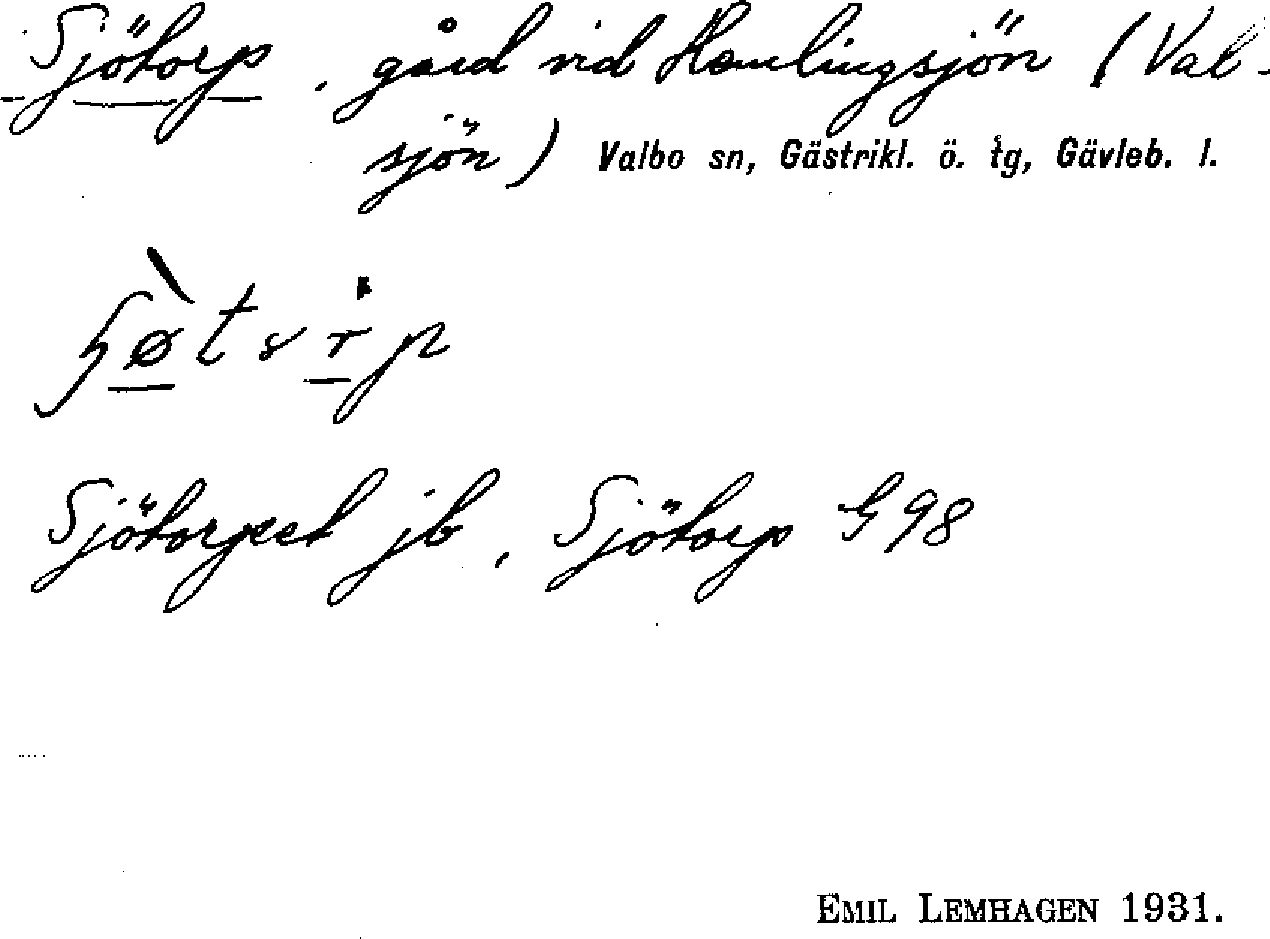 Sjötorp, gård vid Hemlingsjön (Val-
sjön) Valbo sn, Gästrikl. ö. tg, Gävleb. l.
Sjötorpet jb, Sjötorp G 98
EMIL LEMHAGEN 1931.